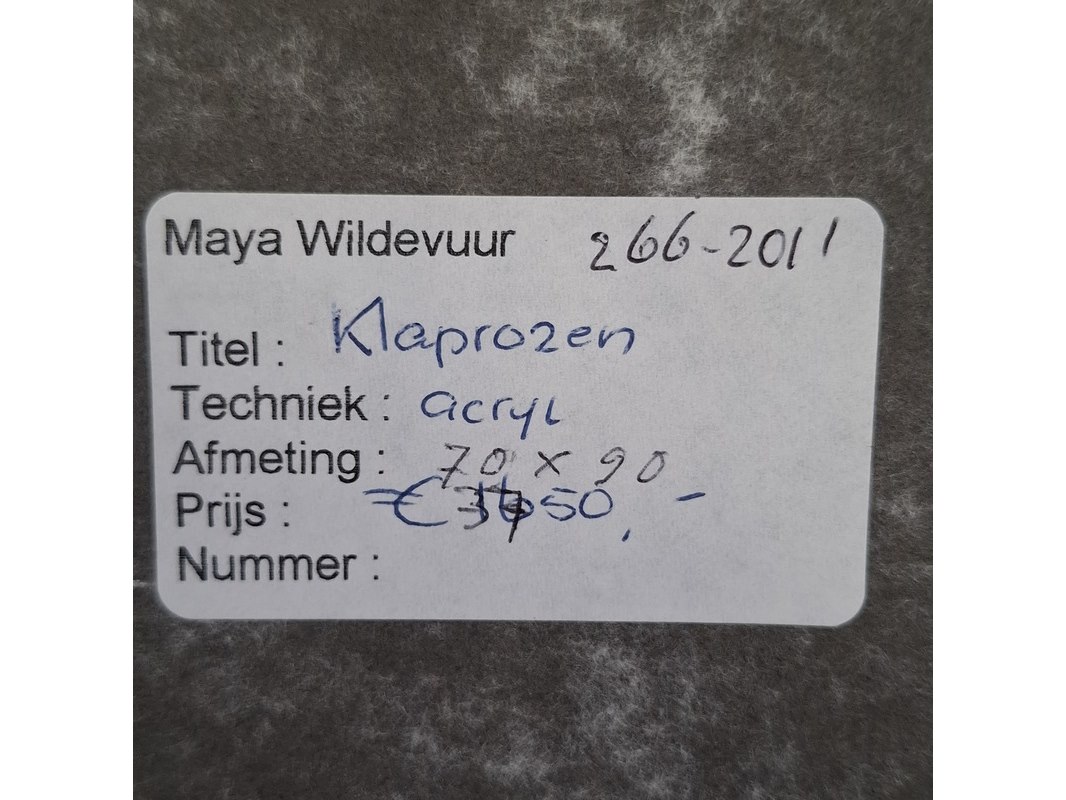 Maya Wildevuur 266-2011
Titel : Klaprozen
Techniek : acryl
Afmeting : 70 x 90
Prijs : €
Nummer :